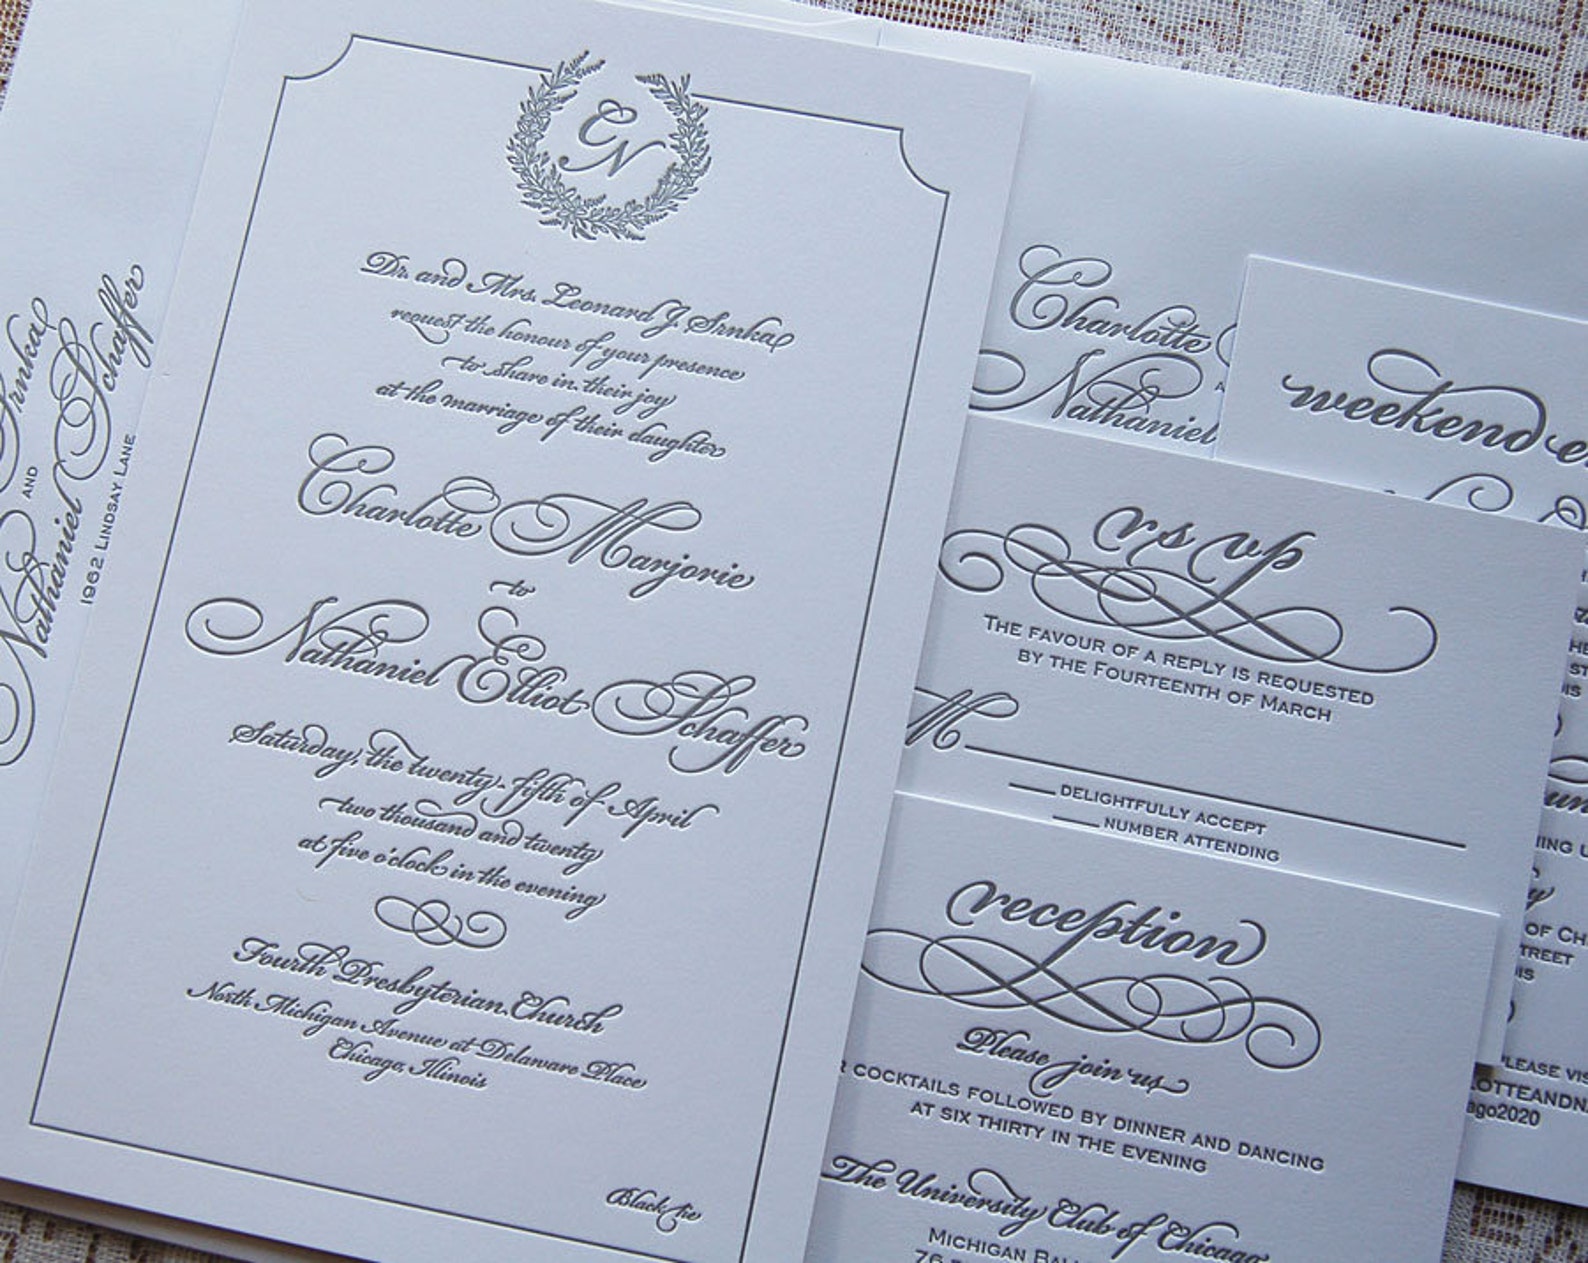 CN
Dr. and Mrs. Leonard J. Srnka
request the honour of your presence
to share in their joy
at the marriage of their daughter
Charlotte Marjorie
to
Nathaniel Elliot Schaffer
Saturday, the twenty-fifth of April
two thousand and twenty
at five o'clock in the evening
Fourth Presbyterian Church
North Michigan Avenue at Delaware Place
Chicago, Illinois
Black tie
Srnka
AND
Nathaniel Schaffer
1962 LINDSAY LANE
Charlotte
Nathaniel
weekend e
rsvp
THE FAVOUR OF A REPLY IS REQUESTED
BY THE FOURTEENTH OF MARCH
M
DELIGHTFULLY ACCEPT
NUMBER ATTENDING
reception
Please join us
R COCKTAILS FOLLOWED BY DINNER AND DANCING
AT SIX THIRTY IN THE EVENING
The University Club of Chicago
MICHIGAN BAL
76
ING
OF CH
TREET
IS
LEASE VIS
LOTTEANDN
ago2020